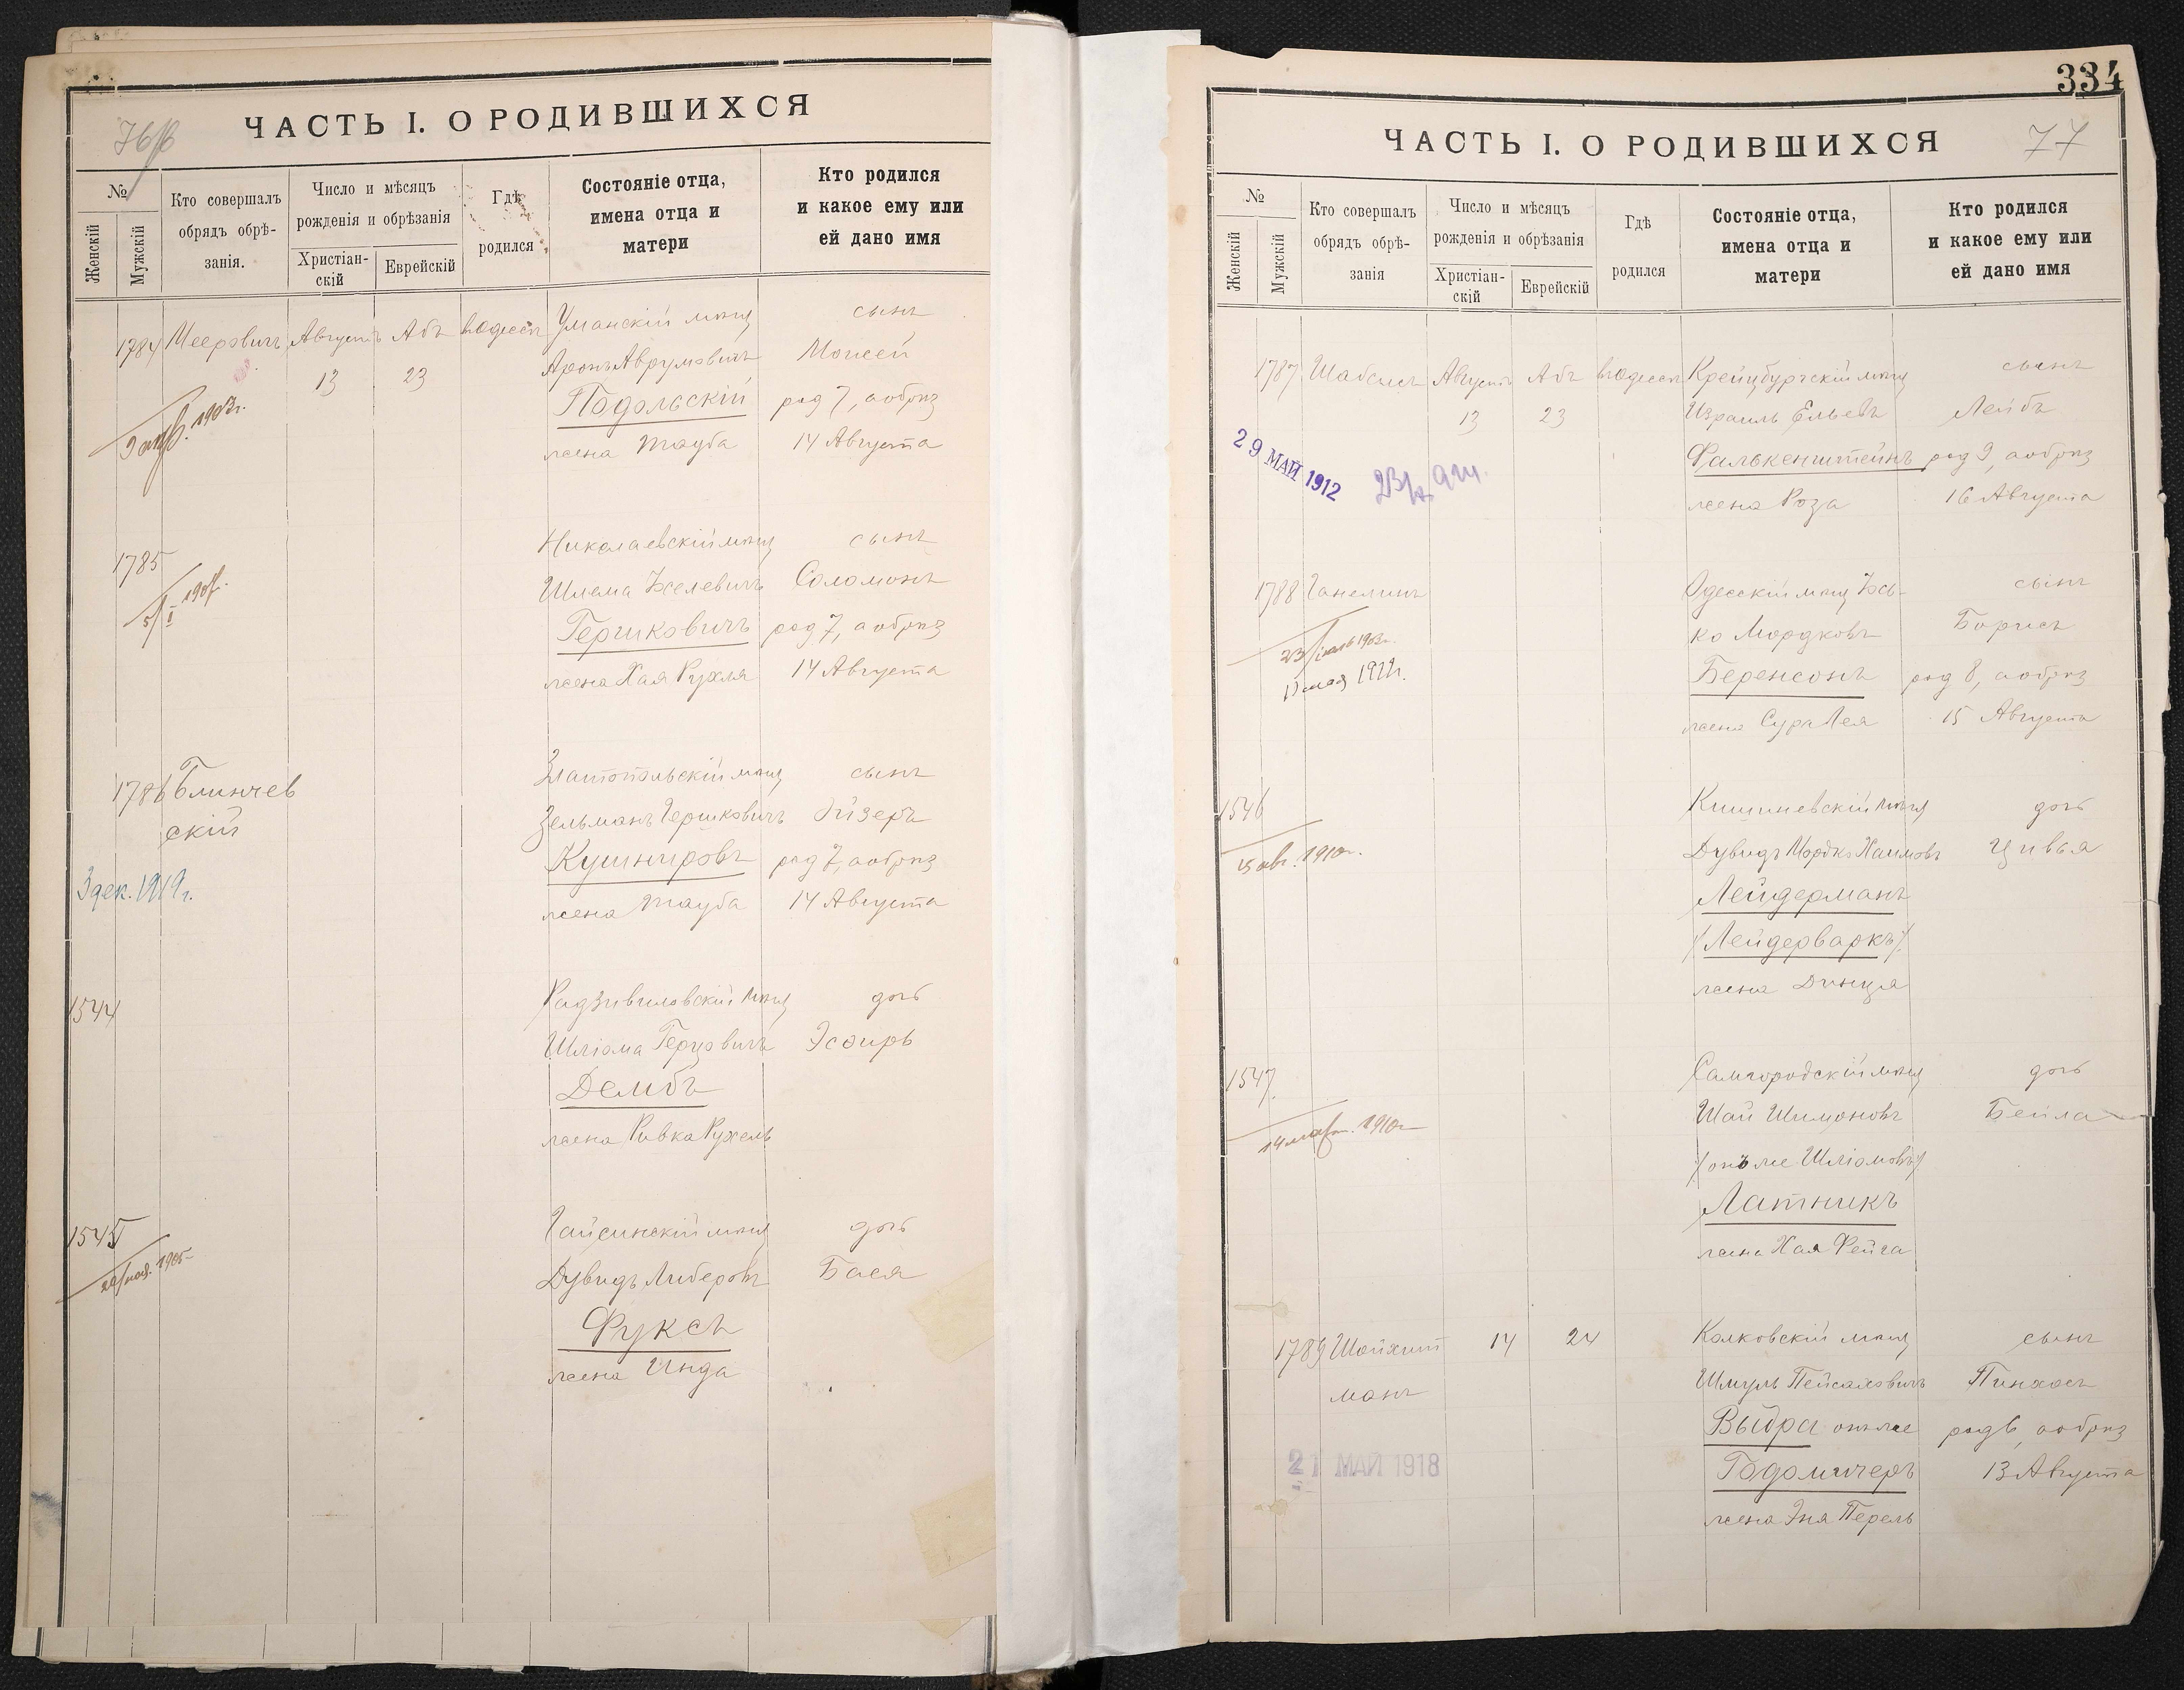 ЧАСТЬ I. О РОДИВШИХСЯ
№
Женскій
Мужскій
Кто совершалъ
обрядъ обрѣ-
занія.
Число и мѣсяцъ
рожденія и обрѣзанія
Христіан-
скій
Еврейскій
Гдѣ
родился
Состояніе отца,
имена отца и
матери
Кто родился
и какое ему или
ей дано имя
1784 Мееровичъ Августъ Абъ въ Одессѣ Уманскій мѣщ сынъ
13 23 Аронъ Аврумовичъ Моисей
Подольскій род 7, а обрѣз
жена Тауба 14 Августа
1903г.
1785 Николаевскій мѣщ сынъ
Шлема Хселевичъ Соломонъ
Гершковичъ род 7, а обрѣз
жена Хая Рухля 14 Августа
1786 Блинчев Златопольскій мѣщ сынъ
скій Зельманъ Гершковичъ Эйзеръ
Кушнировъ род 7, а обрѣз
3 дек. 1919г. жена Тауба 14 Августа
1544 Радзивиловскій мѣщ дочь
Шліома Герцовичъ Эсѳирь
Дембъ
жена Ривка Рухель
1545 Гайсинскій мѣщ дочь
Дувидъ Либеровъ Бася
Фуксъ
жена Инда
334
ЧАСТЬ I. О РОДИВШИХСЯ 77
№
Женскій
Мужскій
Кто совершалъ
обрядъ обрѣ-
занія
Число и мѣсяцъ
рожденія и обрѣзанія
Христіан-
скій
Еврейскій
Гдѣ
родился
Состояніе отца,
имена отца и
матери
Кто родился
и какое ему или
ей дано имя
1787 Шабсисъ Августъ Абъ въ Одессѣ Крейцбургскій мѣщ сынъ
13 23 Израиль Ельевъ Лейбъ
29 МАЙ 1912 Фалькенштейнъ род 9, а обрѣз
жена Роза 16 Августа
1788 Ганелинъ Одесскій мѣщ Хсь-
ко Мордковъ сынъ
Борисъ
Беренсонъ род 8, а обрѣз
жена Сура Лея 15 Августа
1546 Кишиневскій мѣщ дочь
1910г. Дувидъ Мордко Хаимовъ Цивья
Лейдерманъ
/Лейдерваркъ/
жена Двойра
1547 Самгородскій мѣщ дочь
Шай Шимоновъ Бейла
/онъ же Шліомовъ/
Латникъ
жена Хая Фейга
1789 Шойхит 14 24 Колковскій мѣщ сынъ
манъ Шмуль Пейсаховичъ Пинхосъ
Выдра онъ же род 6, а обрѣз
21 МАЙ 1918 Годомичеръ 13 Августа
жена Эня Перель